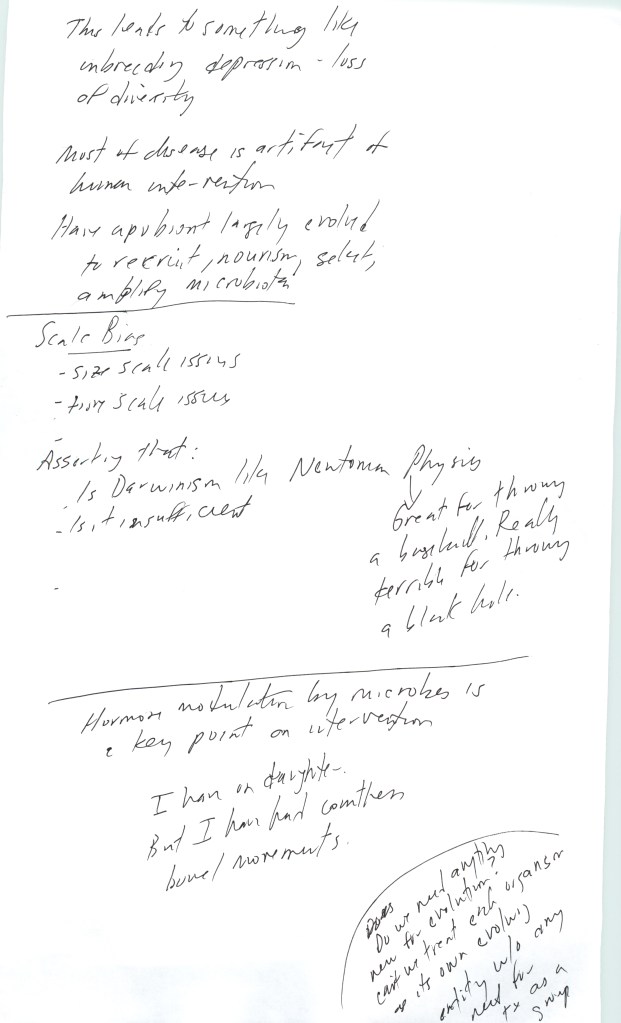 This leads to something like
inbreeding depression - loss
of diversity
Most of disease is artifact of
human intervention
Have apobiont largely evolved
to recruit, nourish, select,
amplify microbiota
Scale Bias
- size scale issues
- time scale issues
-
Asserting that:
- Is Darwinism like Newtonian Physics
- Is it insufficient
Great for throwing
a baseball. Really
terrible for throwing
a black hole.
-
Hormone modulation by microbes is
a key point on intervention
I have on daughter.
But I have had countless
bowel movements.
Do we need anything
new for evolution?
can't we treat each organism
as its own evolving
entity w/o any
need for
tx as a
group